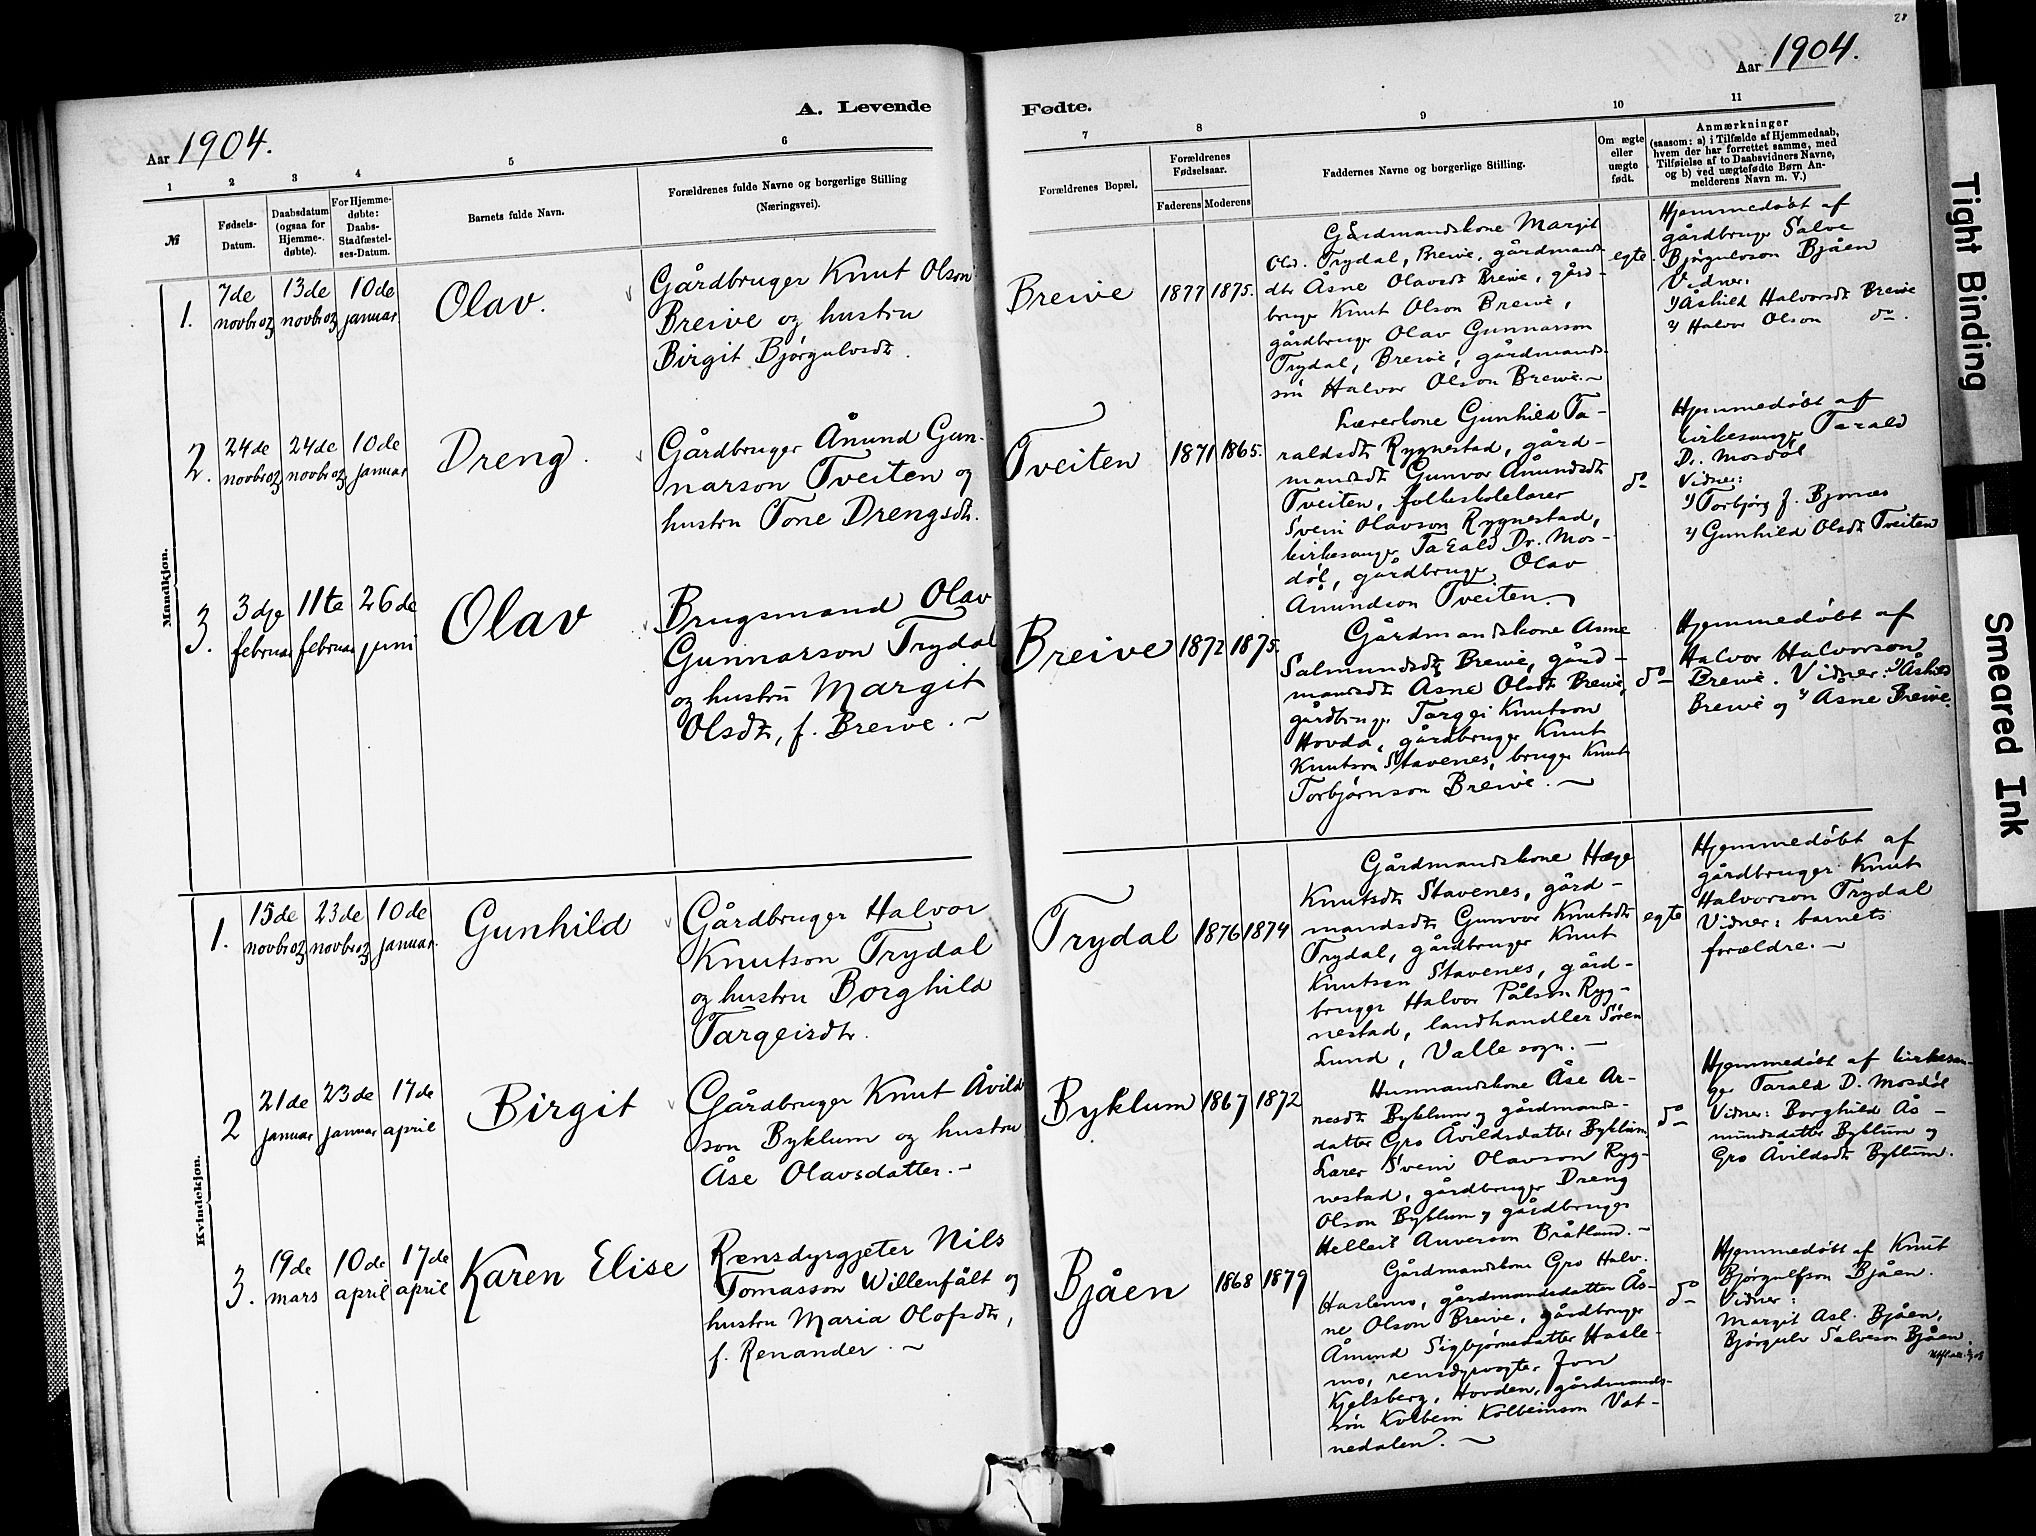 28
Aar 1904.
A. Levende
Fødte.
Aar 1904.
1 2 3 4 5 6 7 8 9 10 11
№
Fødsels-
Datum.
Daabsdatum
(ogsaa for
Hjemme-
døbte).
For Hjemme-
døbte:
Daabs-
Stadfæstel-
ses-Datum.
Barnets fulde Navn.
Forældrenes fulde Navne og borgerlige Stilling
(Næringsvei).
Forældrenes Bopæl.
Forældrenes
Fødselsaar.
Faderens Moderens
Faddernes Navne og borgerlige Stilling.
Om ægte
eller
uægte
født.
Anmærkninger
(saasom: a) i Tilfælde af Hjemmedaab,
hvem der har forrettet samme, med
Tilføielse af to Daabsvidners Navne,
og b) ved uægtefødte Børn An-
melderens Navn m. V.)
Mandkjøn.
1.
7de
novbr 03
13de
novbr 03
10de
januar
Olav.
Gårdbruger Knut Olson
Breive og hustru
Birgit Bjørgulvsdtr.
Breive
1877
1875.
Gårdmandskone Margit
Old. Trydal, Breive, gårdmands-
dtr Åsne Olavsdt Breive, gård-
bruger Knut Olson Breive,
gårdbruger Olav Gunnarson
Trydal, Breive, gårdmands-
søn Halvor Olson Breive.~
egte
Hjemmedøbt af
gårdbruger Salve
Bjørgulvson Bjåen
Vidner:
1) Åshild Halvorsdt Breive
2) Halvor Olson do.
2.
24de
novbr 03
24de
novbr 03
10de
januar
Dreng.
Gårdbruger Ånund Gun-
narson Tveiten og
hustru Tone Drengsdtr.
Tveiten
1871
1865.
Lærerkone Gunhild Ta-
raldsdtr Rygnestad, gård-
mandsdt Gunvor Ånundsdtr
Tveiten, folkeskolelærer
Svein Olavson Rygnestad,
kirkesanger Tarald Dr. Mos-
døl, gårdbruger Olav
Ånundson Tveiten.
do
Hjemmedøbt af
kirkesanger Tarald
Dr. Mosdøl
Vidner:
1) Torbjørg f. Bjørnes
2) Gunhild Olsdt Tveiten
3.
3dje
februar
11te
februar
26de
juni
Olav
Brugsmand Olav
Gunnarson Trydal
og hustru Margit
Olsdtr, f. Breive. ~
Breive
1872
1875.
Gårdmandskone Åsne
Salmundsdtr Breive, gård-
mandsdtr Åsne Olsdt Breive,
gårdbruger Targei Knutson
Hovda, gårdbruger Knut
Knutson Stavenes, bruger Knut
Torbjørnson Breive. ~
do
Hjemmedøbt af
Halvor Halvorson
Breive. Vidner: 1) Åshild
Breive og 2) Åsne Breive.
Kvindekjøn.
1.
15de
novbr 03
23de
novbr 03
10de
januar.
Gunhild
Gårdbruger Halvor
Knutson Trydal
og hustru Borghild
Targeisdtr.
Trydal
1876
1874
Gårdmandskone Hæge
Knutsdt Stavenes, gård-
mandsdt Gunvor Knutsdt
Trydal, gårdbruger Knut
Knutsen Stavenes, gård-
bruger Halvor Pålson Ryg-
nestad, landhandler Søren
Lund, Valle sogn. -
egte
Hjemmedøbt af
gårdbruger Knut
Halvorson Trydal
Vidner: barnets
forældre. ~
2
21de
januar
23de
januar
17de
april
Birgit
Gårdbruger Knut Åvild-
son Byklum og hustru
Åse Olavsdatter. -
Byklum
1867
1872
Husmandskone Åse Ar-
nesdt Byklum, gårdmands-
datter Gro Åvildsdatter Byklum
Lærer Svein Olavson Ryg-
nestad, gårdbruger Dreng
Olson Byklum, gårdbruger
Helleik Anverson Bråtland. -
do
Hjemmedøbt af kirkesan-
ger Tarald D. Mosdøl
Vidner: Borghild Ås-
mundsdatter Byklum og
Gro Åvildsdt Byklum.
3.
19de
mars
10de
april
17de
april
Karen Elise
Rensdyrgjeter Nils
Tomasson Willenfålt og
hustru Maria Olofsdtr,
f. Renander. ~
Bjåen
1868
1879
Gårdmandskone Gro Halv.
Haslemo, gårdmandsdatter Ås-
ne Olson Breive, gårdbruger
Åmund Sigbjørnsdatter Hasle-
mo, rensdyrvogter Jon
Kjelsberg, Hovden, gårdmands-
søn Kolbein Kolbeinson Vat-
nedalen. ~
do
Hjemmedøbt af Knut
Bjørgulfson Bjåen.
Vidner:
Margit Asl. Bjåen,
Bjørgulv Salveson Bjåen
Tight Binding
Smeared Ink